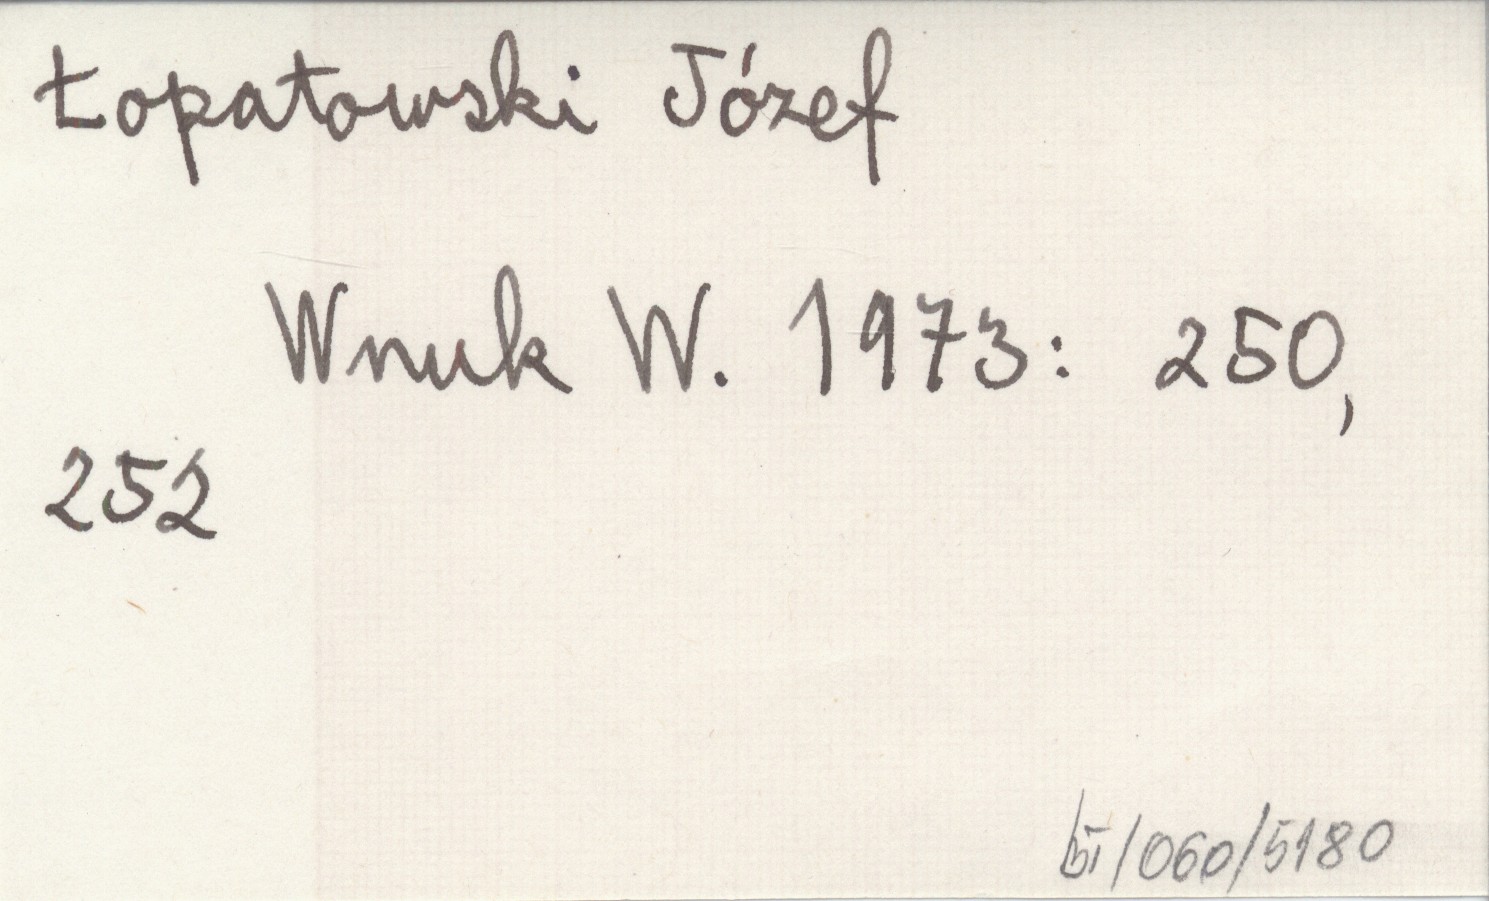 Łopatowski Józef
Wnuk W. 1973: 250,
252
/060/5180